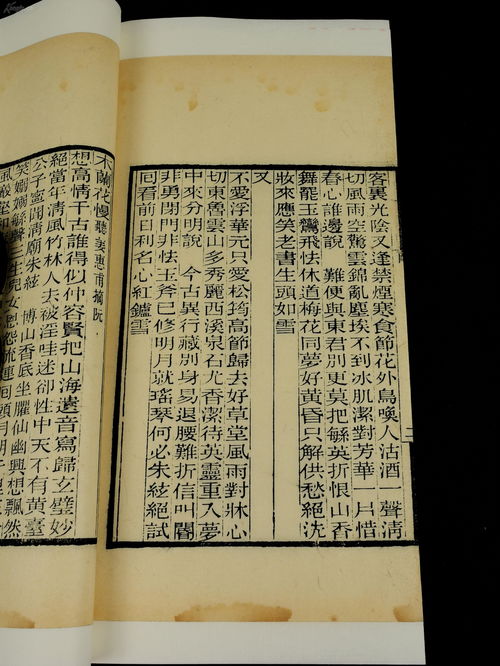 客裏光陰又逢禁煙寒食節花外鳥喚人沽酒一聲清
切風雨空驚雲錦亂塵埃不到冰肌潔對芳華一片惜
春心誰邊說 難便與東君別更莫把蘇英折恨山香
舞罷玉鸞飛怯休道梅花同夢好黃昏只解供愁絕洗
妝來應笑老書生頭如雪
又
不愛浮華元只愛松筠高節歸去好草堂風雨對牀心
切東魯雲山多秀麗西溪泉石尤香潔待英靈重入夢
中來分明說 今古異行藏別身易退腰難折信叫閽
非勇閉門非怯玉斧已修明月就瑤琴何必朱絃絕試
回看前日利名心紅鑪雪
木蘭花慢聽姜惠甫摘阮
想高情千古誰得似仲容賢把山海遺音寫歸玄璧妙
絕當年清風竹林人去被淫哇迷卻性中天不有黃臺
公子寧聞清廟朱絃 博山香底坐臞仙幽興想飄然